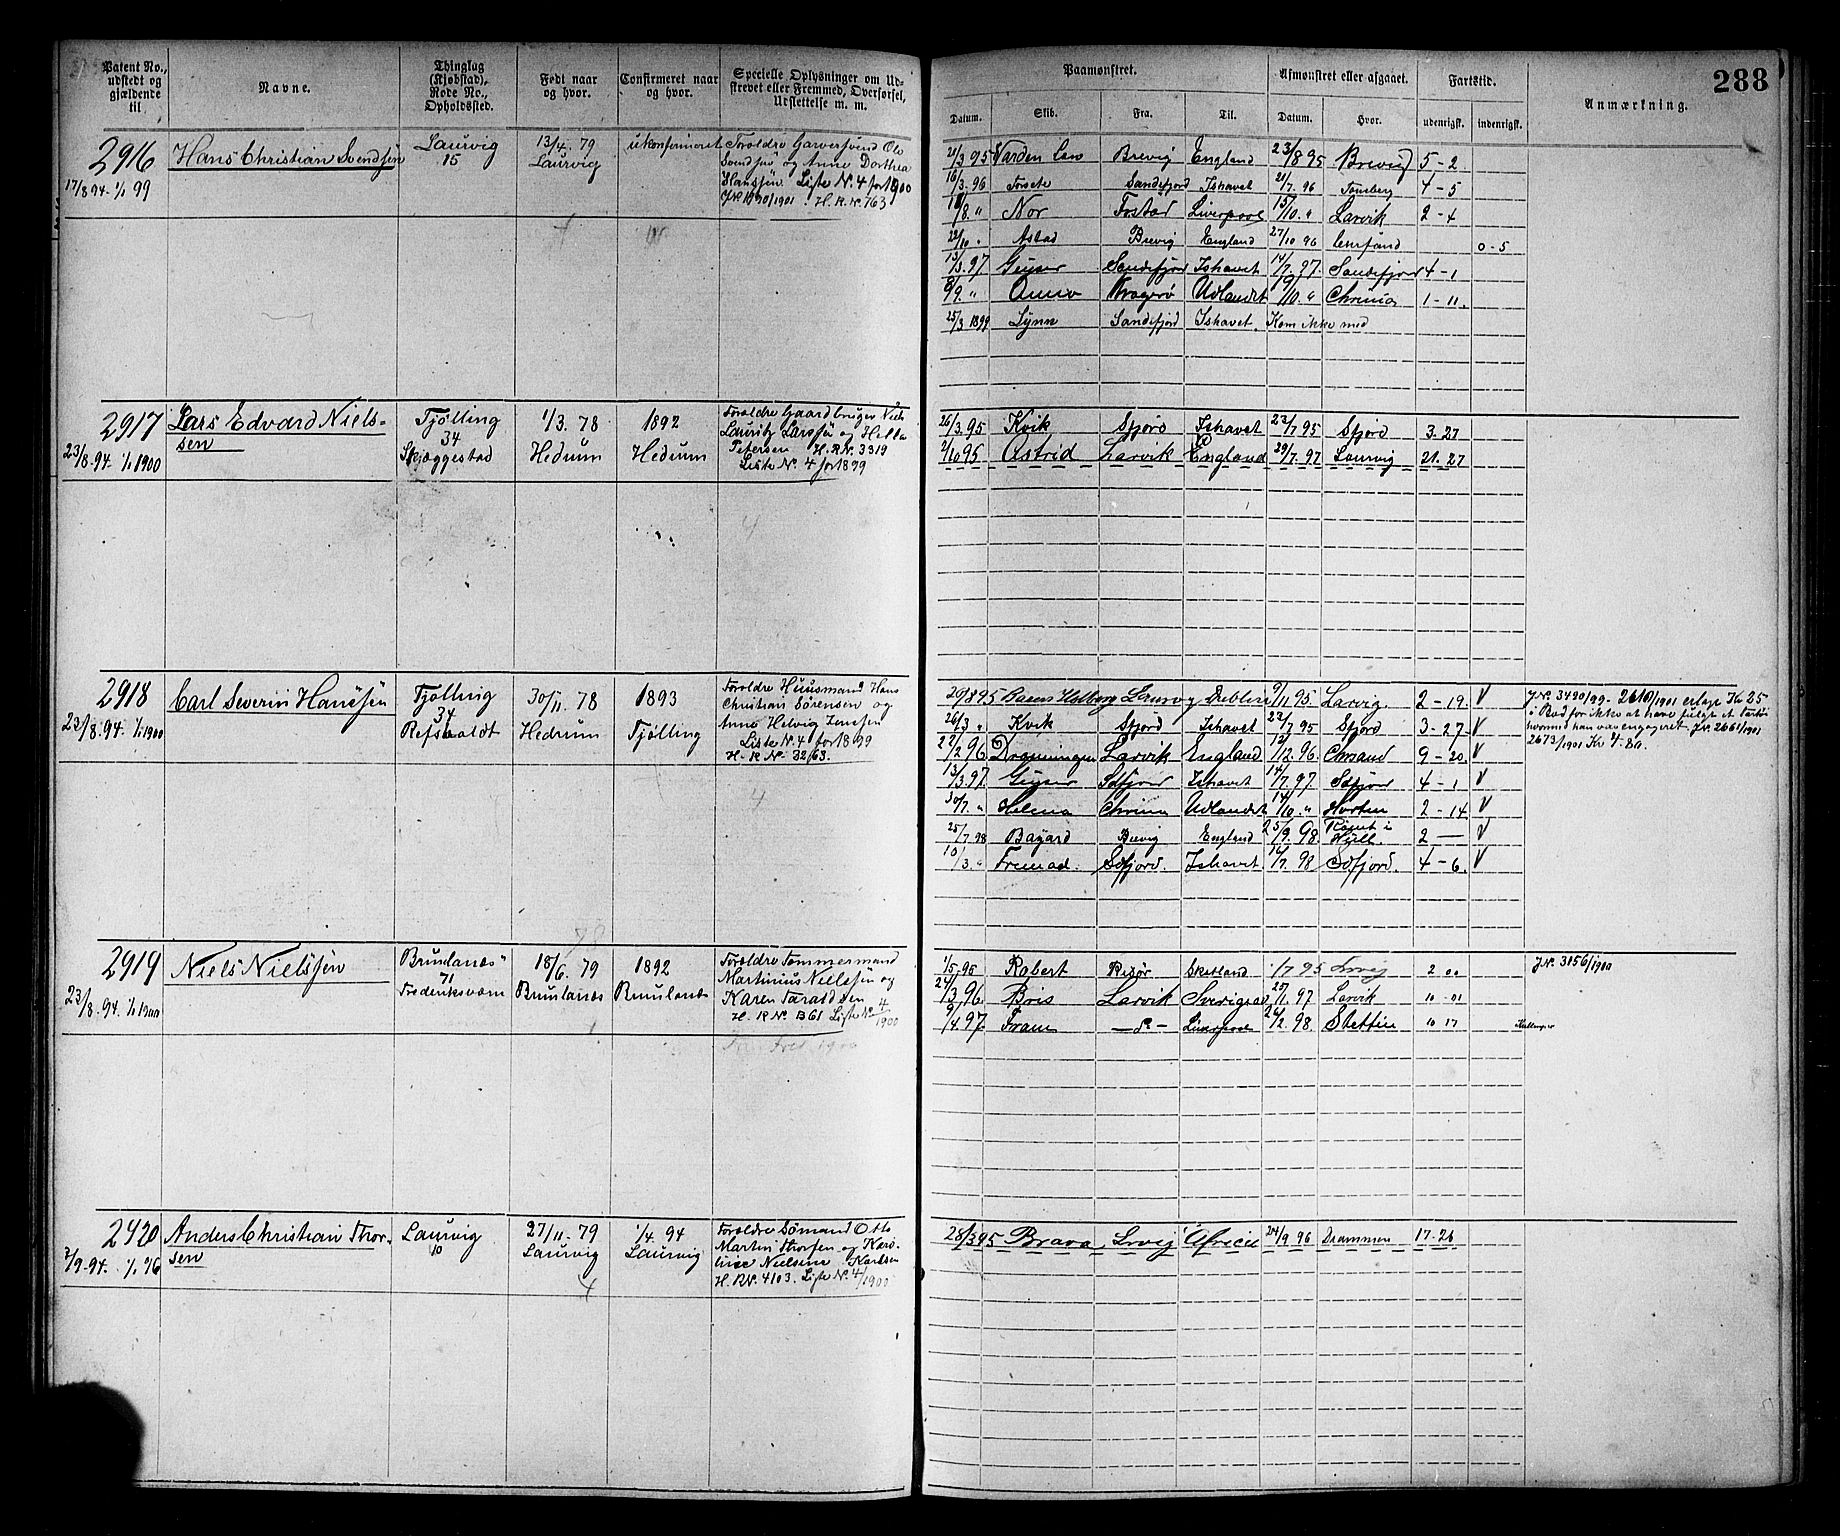 288
Patent No., udstedt og gjældende til
Navne.
Thinglag (Kjøbstad), Rode No., Opholdssted.
Født naar og hvor.
Confirmeret naar og hvor.
Specielle Oplysninger om Udskrevet eller Fremmed, Overførsel, Udslettelse m. m.
Paamønstret.
Afmønstret eller afgaaet.
Fartstid.
Anmærkning.
Datum. Skib. Fra. Til. Datum. Hvor. udenrigst. indenrigst.
2916
17/8 94 - 1/1 99
Hans Christian Svendsen
Laurvig
15
13/4. 79
Laurvig
ukonfirmeret
Forældre Garversvend Ole
Svendsen og Anne Dorthea
Hanssen. Liste N. 4 for 1900
H. R. N. 763
21/3 95 Varden Brevig England 23/8 95 Brevig 5 - 2
16/3. 96 Forsete Sandefjord Ishavet 21/7. 96 Tønsberg 4 - 5
/8. " Nor Liverpool 15/10 " Larvik 2 - 4
22/10 " Astad Brevig England 27/10 96 0 - 5
13/3. 97 Geyser Sandefjord Ishavet 14/7. 97. Sandefjord 4 - 1
/9. " Kragerø Udlandet /10. " Chrania 1 - 11.
25/3 1899 Lynn Sandefjord Ishavet. Kom ikke med
2917
23/8. 94. 1/1 1900
Lars Edvard Niels-
sen
Tjølling
34
Skjæggestad
1/3. 78
Hedrum
1892
Hedrum
Forældre Gaardbruger Niels
Lauritz Larssen og Helle
Petersen H. R N. 3319
Liste N. 4 for 1899
26/3. 95 Kvik Sfjord Ishavet 23/7 95 Sfjord 3. 27
2/10 95 Astrid Larvik England 29/7. 97 Laurvig 21. 27
2918
23/8. 94. 1/1 1900
Carl Severin Hanssen
Tjølling
34
Refsholdt
30/11. 78
Hedrum
1893
Tjølling
Forældre Huusmand Hans
Christian Sørensen og
Anne Helvig Jonsen
Liste N. 4 for 1899
H. R N. 3263.
29/8 95 Laurvig Dublin 9/11 95. Larvig. 2 - 19. V
26/3 " Kvik Sfjord Ishavet 22/7 95 Sfjord 3 - 27 V
22/2 96 Dronningen Larvik England 12/12. 96 Chrsand 9 - 20 V
13/3 97. Geyser Sdfjord Ishavet 14/7. 97. Sdfjord 4 - 1 V
30/7. " Helena Chrania Udlandet 14/10. " Horten 2 - 14 V
25/7. 98 Bayard Brevig England 25/9 98. Rømt i
Hull. 2 — V
10/3. " Fremad. Sdfjord. Ishavet. 14/7. 98 Sdfjord. 4 - 6. V
J.N. 3490/99 - 2610/1901 erlagt Kr 25
i Bod for ikke at have fulgt et Fartøi
hvormed han var engageret. J.N. 2661/1901
2673/1901
2919
23/8. 94. 1/1 1900
Niels Nielssen
Brunlanæs
71
Frederiksværn
18/6. 79
Brunlanæs
1892
Brunlanæs
Forældre Tømmermand
Martinius Nielssen og
Karen Taraldsen
H. R N. 1361 Liste N. 4/1900
1/5. 95 Robert Risør Skotland /7 95 Lvig 2 00
24/3. 96. Bris Larvik 20/1. 97 Larvik 10 - 01
9/4. 97. Fram Liverpool 26/2. 98. Stettin 10 17
J.N. 3156/1900
2920
7/9. 94. 1/1 96
Anders Christian Thor-
sen
Laurvig
10
27/11. 79
Laurvig
1/4. 94
Laurvig
Forældre Sømand Otto
Martin Thorsen og Karo-
line Nielsine Karlsen
H. R N. 4103. Liste N. 4/1900
28/3 95 Brava Lrvig Africa 24/9 96 Drammen 17 - 26